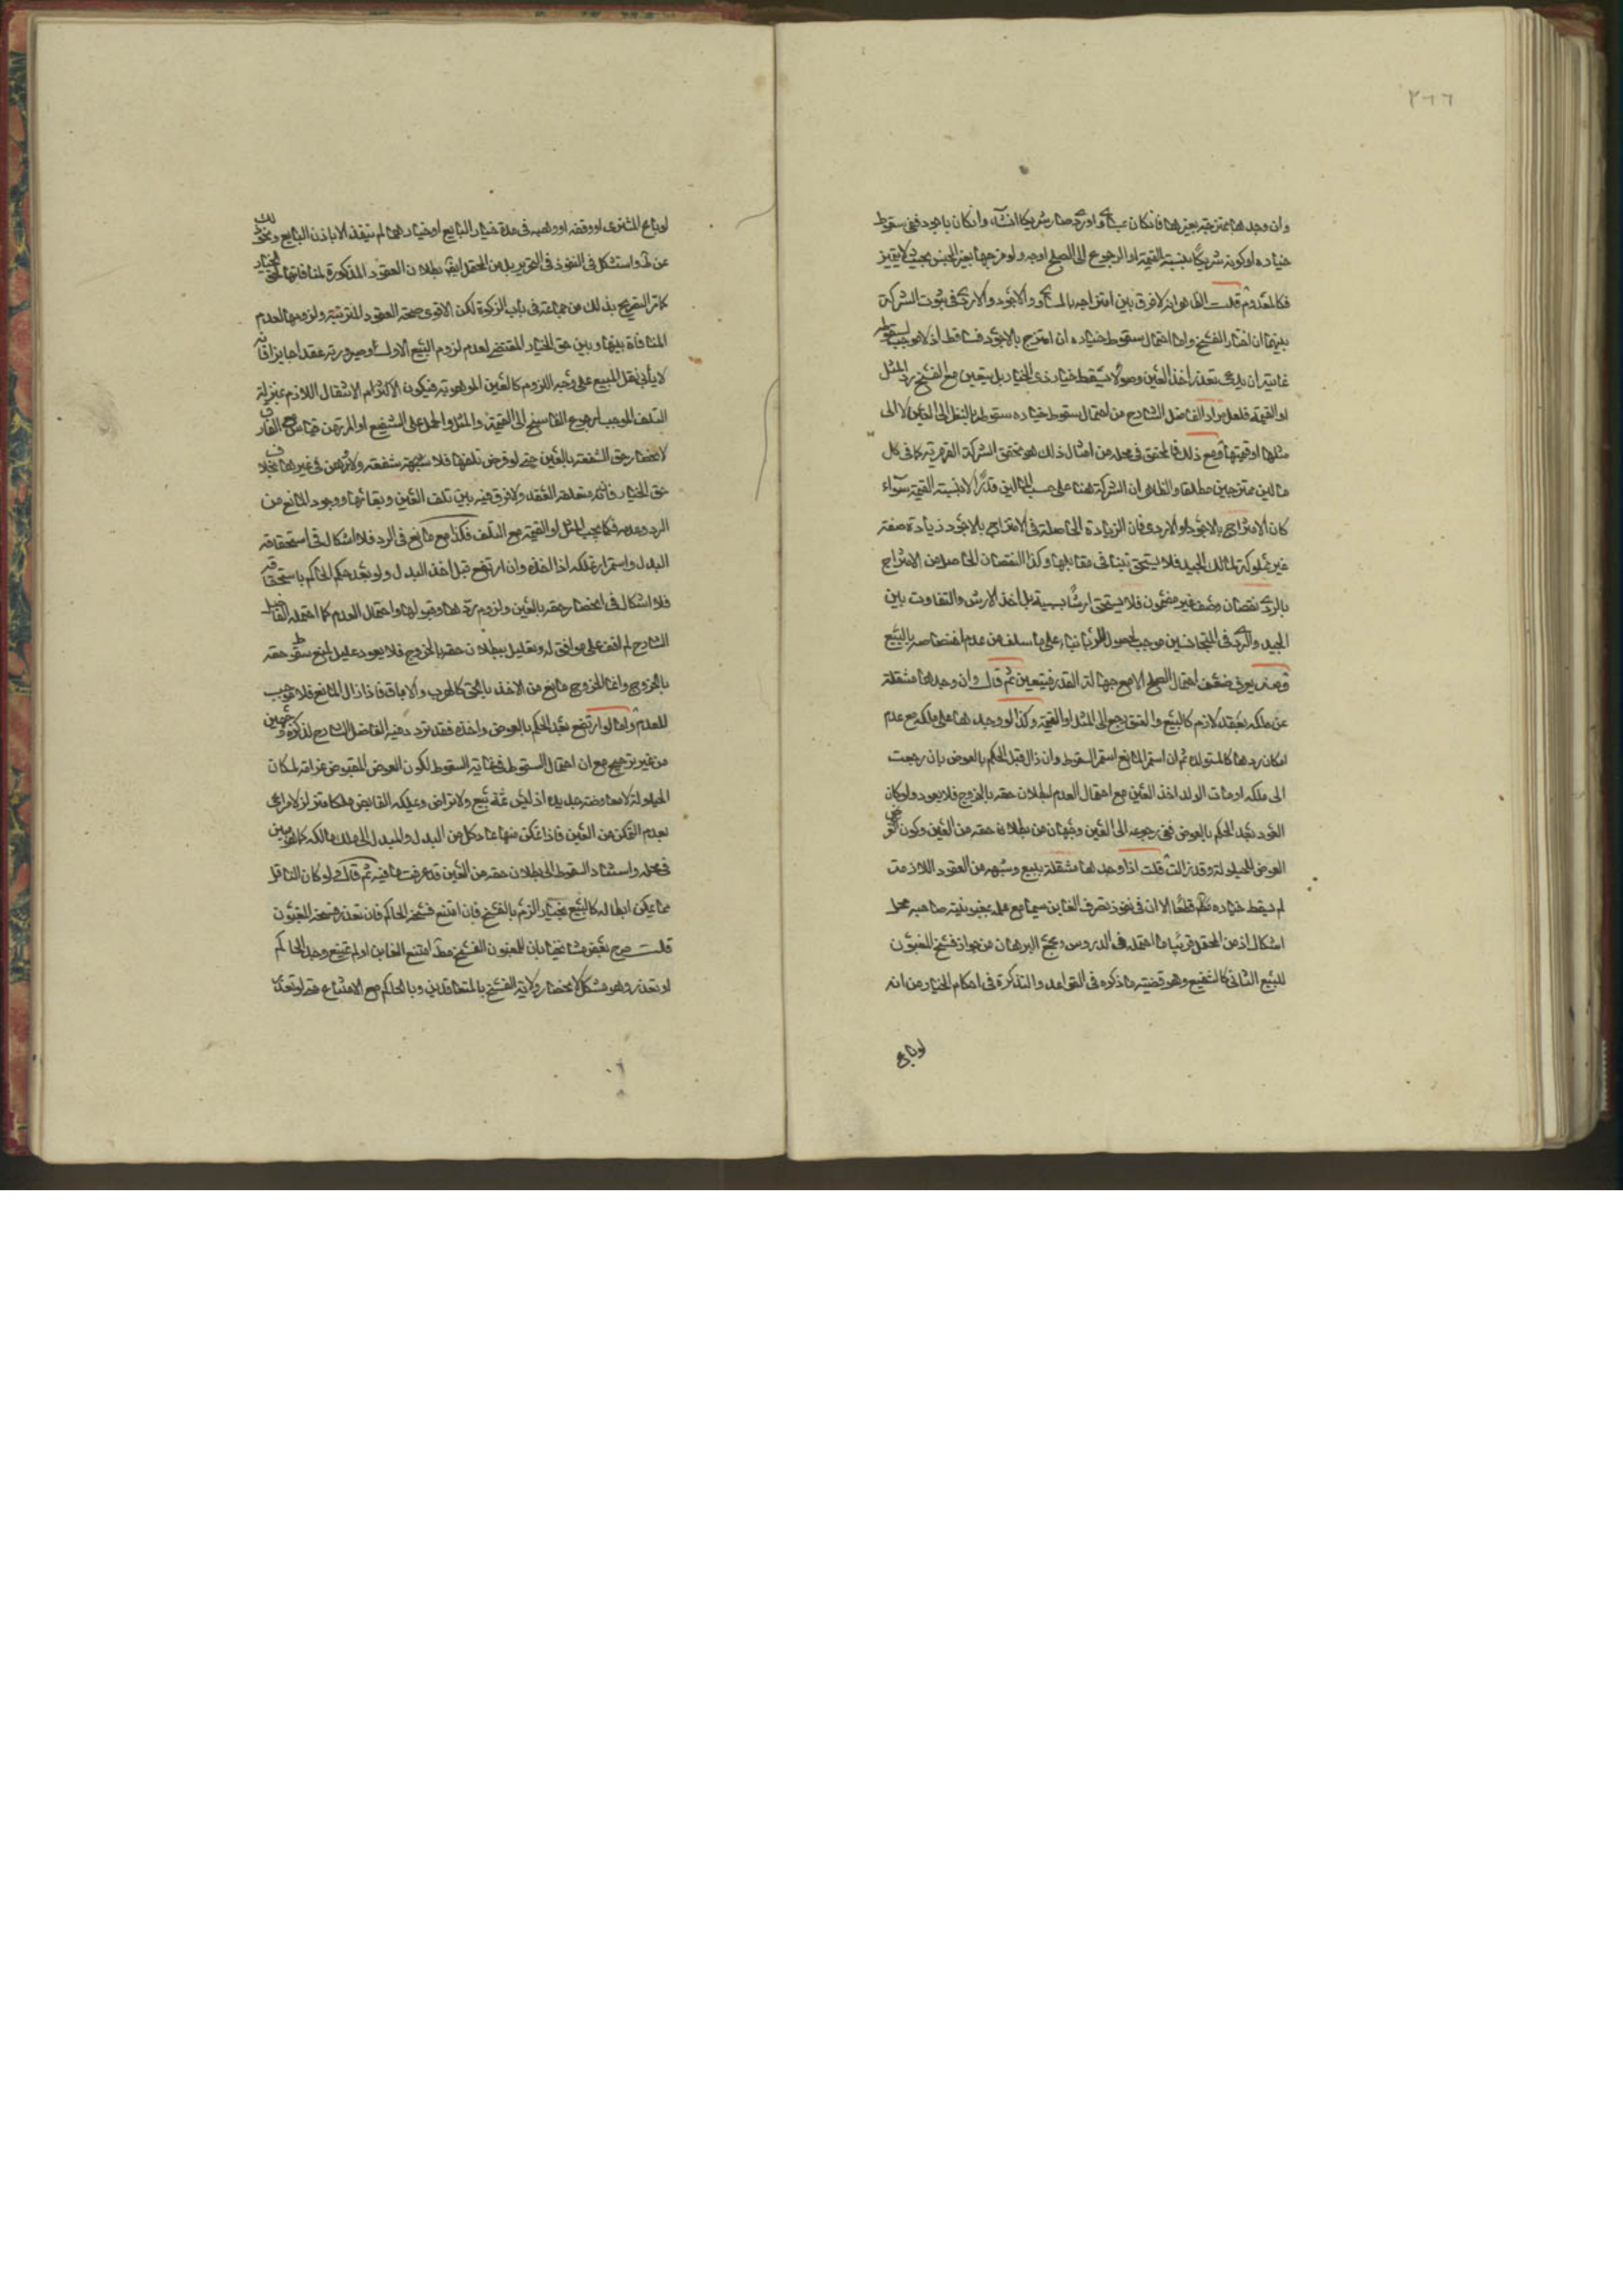 ٢٦٦
وان وجدها ممتزجة بغيرها فان كان بمساو او اردى صار شريكا ان شاء وان كان باجود ففى سقوط
خياره او كونه شريكا بنسبة القيمة او الرجوع الى الصلح اوجه ولو مزجها بغير الجنس بحيث لا يتميز
فكالمعدوم قلت الظاهر انه لا فرق بين امتزاجه بالمساوى والاجود والاردى فى ثبوت الشركة
بينهما ان اختار الفسخ واما احتمال سقوط خياره ان امتزج بالاجود فساقط اذ لا موجب لسقوطه
غايته ان يدعى تعذر اخذ العين وهو لا يسقط خيار ذى الخيار بل يتعين مع الفسخ رد المثل
او القيمة فلعل مراد الفاضل الشارح من احتمال سقوط خياره سقوطه بالنظر الى العين لا الى
مثلها او قيمتها ومع ذلك فالمحقق فى محله من امثال ذلك هو تحقق الشركة القهرية كما فى كل
مالين ممتزجين مطلقا والظاهر ان الشركة هنا على حسب المالين قدرا لا بنسبة القيمة سواء
كان الامتزاج بالاجود او الاردى فان الزيادة الحاصلة فى الامتزاج بالاجود زيادة صفة
غير مملوكة لمالك الجيد فلا يستحق شيئا فى مقابلها وكذا النقصان الحاصل من الامتزاج
بالردى نقصان وصف غير مضمون فلا يستحق ارشا بسببه بل اخذ الارش والتفاوت بين
الجيد والردى فى المتجانسين موجب لحصول الربا بناء على ما سلف من عدم اختصاصه بالبيع
ومنه يعرف ضعف احتمال الصلح الا مع جهالة القدر فيتعين ثم قال وان وجدها منتقلة
عن ملكه بعقد لازم كالبيع والعتق رجع الى المثل او القيمة وكذا لو وجدها على ملكه مع عدم
امكان ردها كالمستولدة ثم ان استمر المانع استمر السقوط وان زال قبل الحكم بالعوض بان رجعت
الى ملكه او مات الولد اخذ العين مع احتمال العدم لبطلان حقه بالخروج فلا يعود ولو كان
العود بعد الحكم بالعوض ففى رجوعه الى العين وجهان من بطلان حقه من العين وكون
العوض للحيلولة وقد زالت قلت اذا وجدها منتقلة ببيع وشبهه من العقود اللازمة
لم يسقط خياره قطعا الا ان فى نفوذ تصرف الغابن سيما مع علمه بمغبونية صاحبه محل
اشكال اذ من المحتمل قريبا ما احتمله فى الدروس ومجمع البرهان من جواز فسخ المغبون
للبيع الثانى كالشفيع وهو قضية ما ذكره فى القواعد والتذكرة فى احكام الخيار من انه
لو باع
لو باع المشترى او وقفه او وهبه فى مدة خيار البايع او خيارهما لم ينفذ الا باذن البايع
عن ط واستشكل فى النفوذ فى التحرير بل من المحتمل ايضا بطلان العقود المذكورة لمنافاتها لحق الخيار
كما مر التصريح بذلك من جماعة فى باب الزكوة لكن الاقوى صحة العقود المترتبة ولزومها لعدم
المنافاة بينها وبين حق الخيار المقتضى لعدم لزوم البيع الاول وصيرورته عقدا جايزا فانه
لا يأبى نقل المبيع على وجه اللزوم كالعين الموهوبة فيكون الانتقال اللازم بمنزلة
التلف الموجب لرجوع الفاسخ الى القيمة والمثل والحمل على الشفيع او المرتهن قياس مع الفارق
لانحصار حق الشفعة بالعين حتى لو فرض تلفها فلا شبهة شفعته ولا رهن فى غيرها بخلاف
حق الخيار فانه متعلق العقد ولا فرق فيه بين تلف العين وبقائها ووجود المانع من
الرد وعدمه فكما يجب المثل او القيمة مع التلف فكذا مع مانع فى الرد فلا اشكال فى استحقاقه
البدل واستمرار تملكه اذا اخذه وان ارتفع قبل اخذ البدل ولو بعد حكم الحاكم باستحقاقه
فلا اشكال فى انحصار حقه بالعين ولزوم ردها وقبولها واحتمال العدم كما احتمله الفاضل
الشارح لم اقف على موافق له وتعليل ببطلان حقه بالخروج فلا يعود عليل لمنع سقوط حقه
بالخروج وانما الخروج مانع من الاخذ بالحق كالهرب والاباق فاذا زال المانع فلا موجب
للعدم واما لو ارتفع بعد الحكم بالعوض واخذه فقد تردد فيه الفاضل الشارح لذكره وجهين
من غير ترجيح مع ان احتمال السقوط فى غاية السقوط لكون العوض المقبوض غرامة لمكان
الحيلولة لا معاوضة جديدة اذ ليس ثمة بيع ولا تراض وتملكه القابض ملكا متزلزلا مراعى
بعدم التمكن من العين فاذا تمكن منها عاد كل من البدل والمبدل الى ملك مالكه كما هو مبين
فى محله واستناد السقوط الى بطلان حقه من العين قد عرفت ما فيه ثم قال ولو كان الناقل
مما يمكن ابطاله كالبيع بخيار الزم بالفسخ فان امتنع فسخه الحاكم فان تعذر فسخه المغبون
قلت صرح بعض مشايخنا بان للمغبون الفسخ مط امتنع الغابن او لم يمتنع وجد الحاكم
او تعذر وهو مشكل لانحصار ولاية الفسخ بالمتعاقدين وبالحاكم مع الامتناع حتى لو تعذر